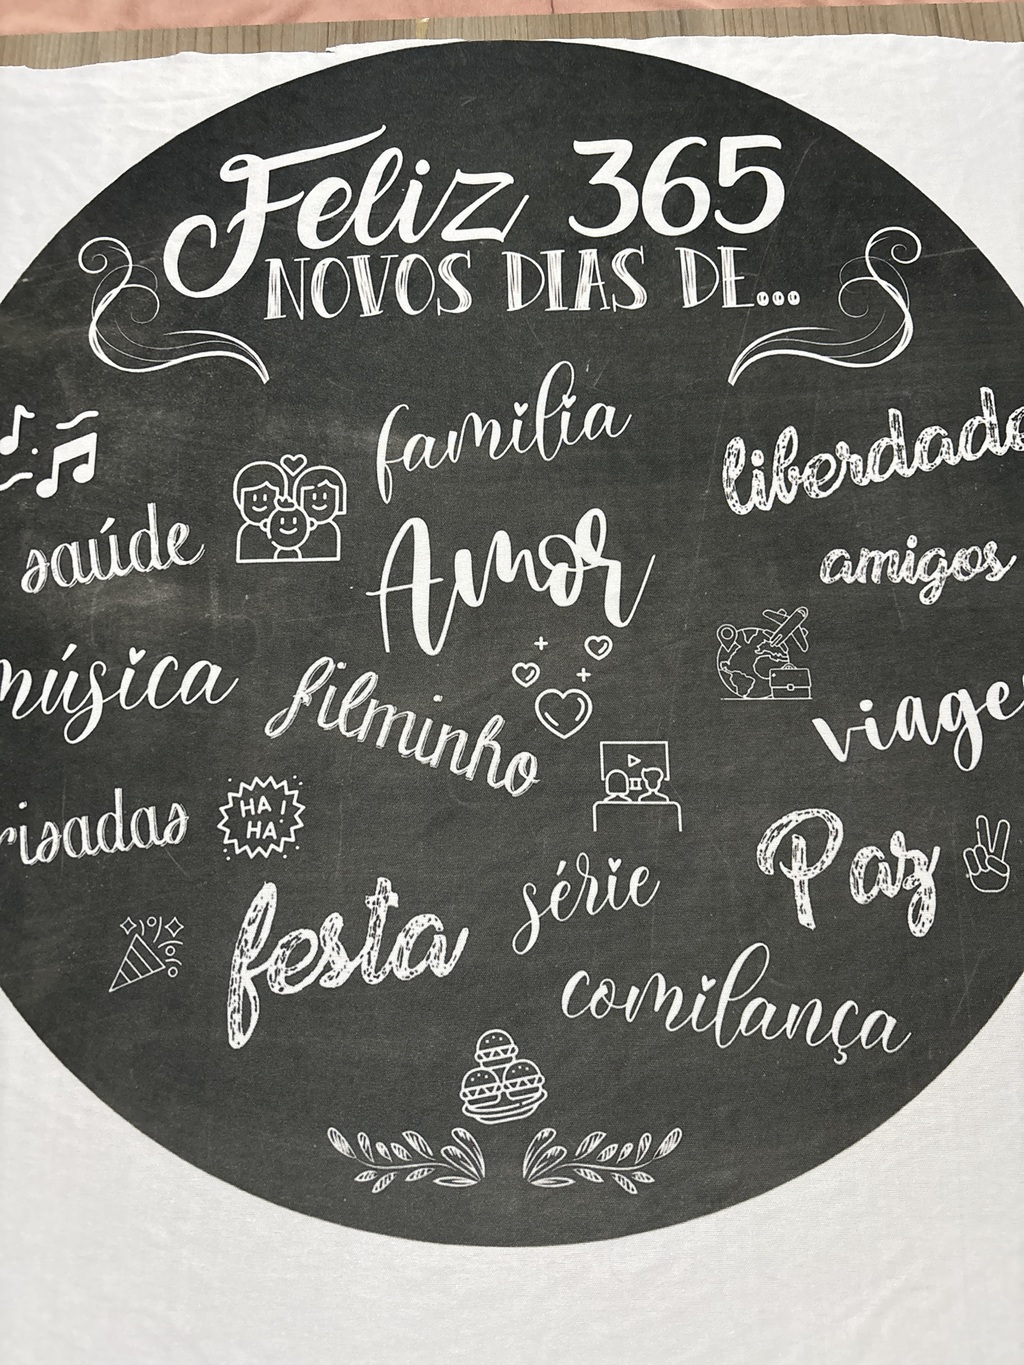 Feliz 365
NOVOS DIAS DE...
família
liberdade
saúde
Amor
amigos
música
filminho
viagem
risadas
HA!
HA!
Paz
série
festa
comilança